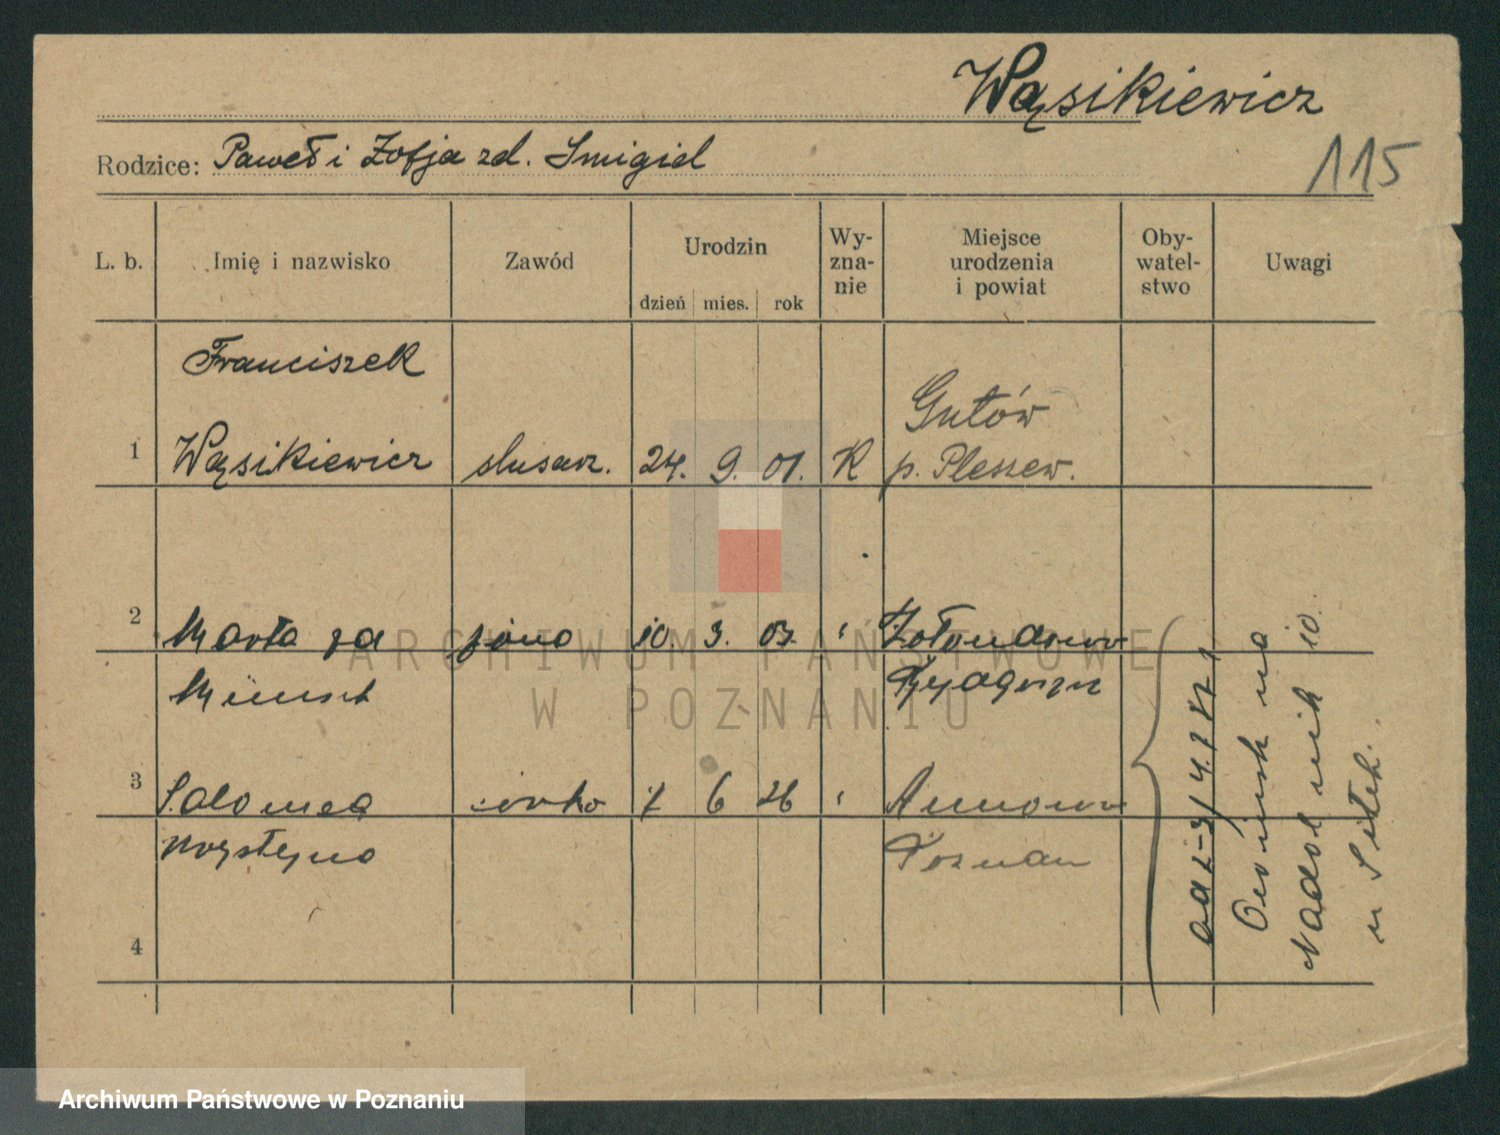 Wąsikiewicz
115
Rodzice: Paweł i Zofja zd. Smigiel
L. b.
Imię i nazwisko
Zawód
Urodzin
dzień mies. rok
Wy-
zna-
nie
Miejsce
urodzenia
i powiat
Oby-
watel-
stwo
Uwagi
Franciszek
Gutów
1 Wąsikiewicz slusarz. 24. 9. 01. K p. Pleszew.
2 Marta za żona 10. 3. 03.
3 Salomea córka 6 26
Krystyna Poznan
4
na
10.
ARCHIWUM PAŃSTWOWE
W POZNANIU
Archiwum Państwowe w Poznaniu